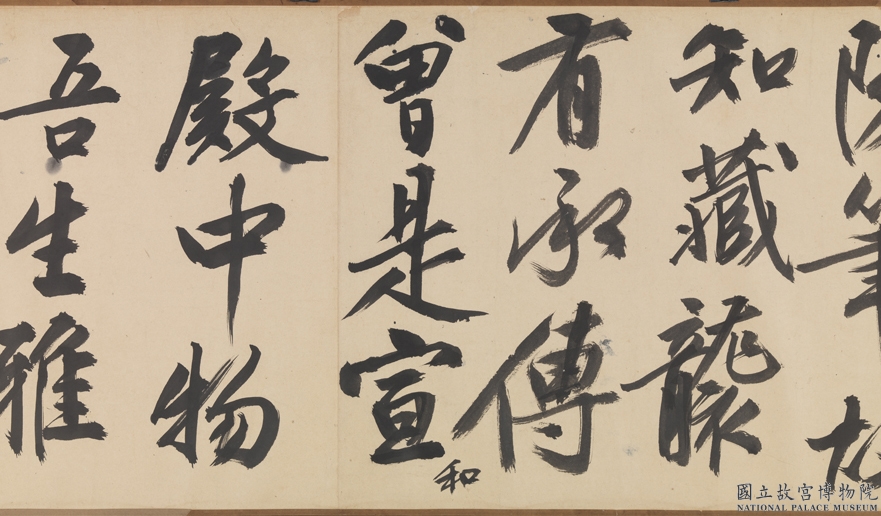 筆
知藏襲
有承傳
曾是宣和
殿中物
吾生雅
國立故宮博物院
NATIONAL PALACE MUSEUM